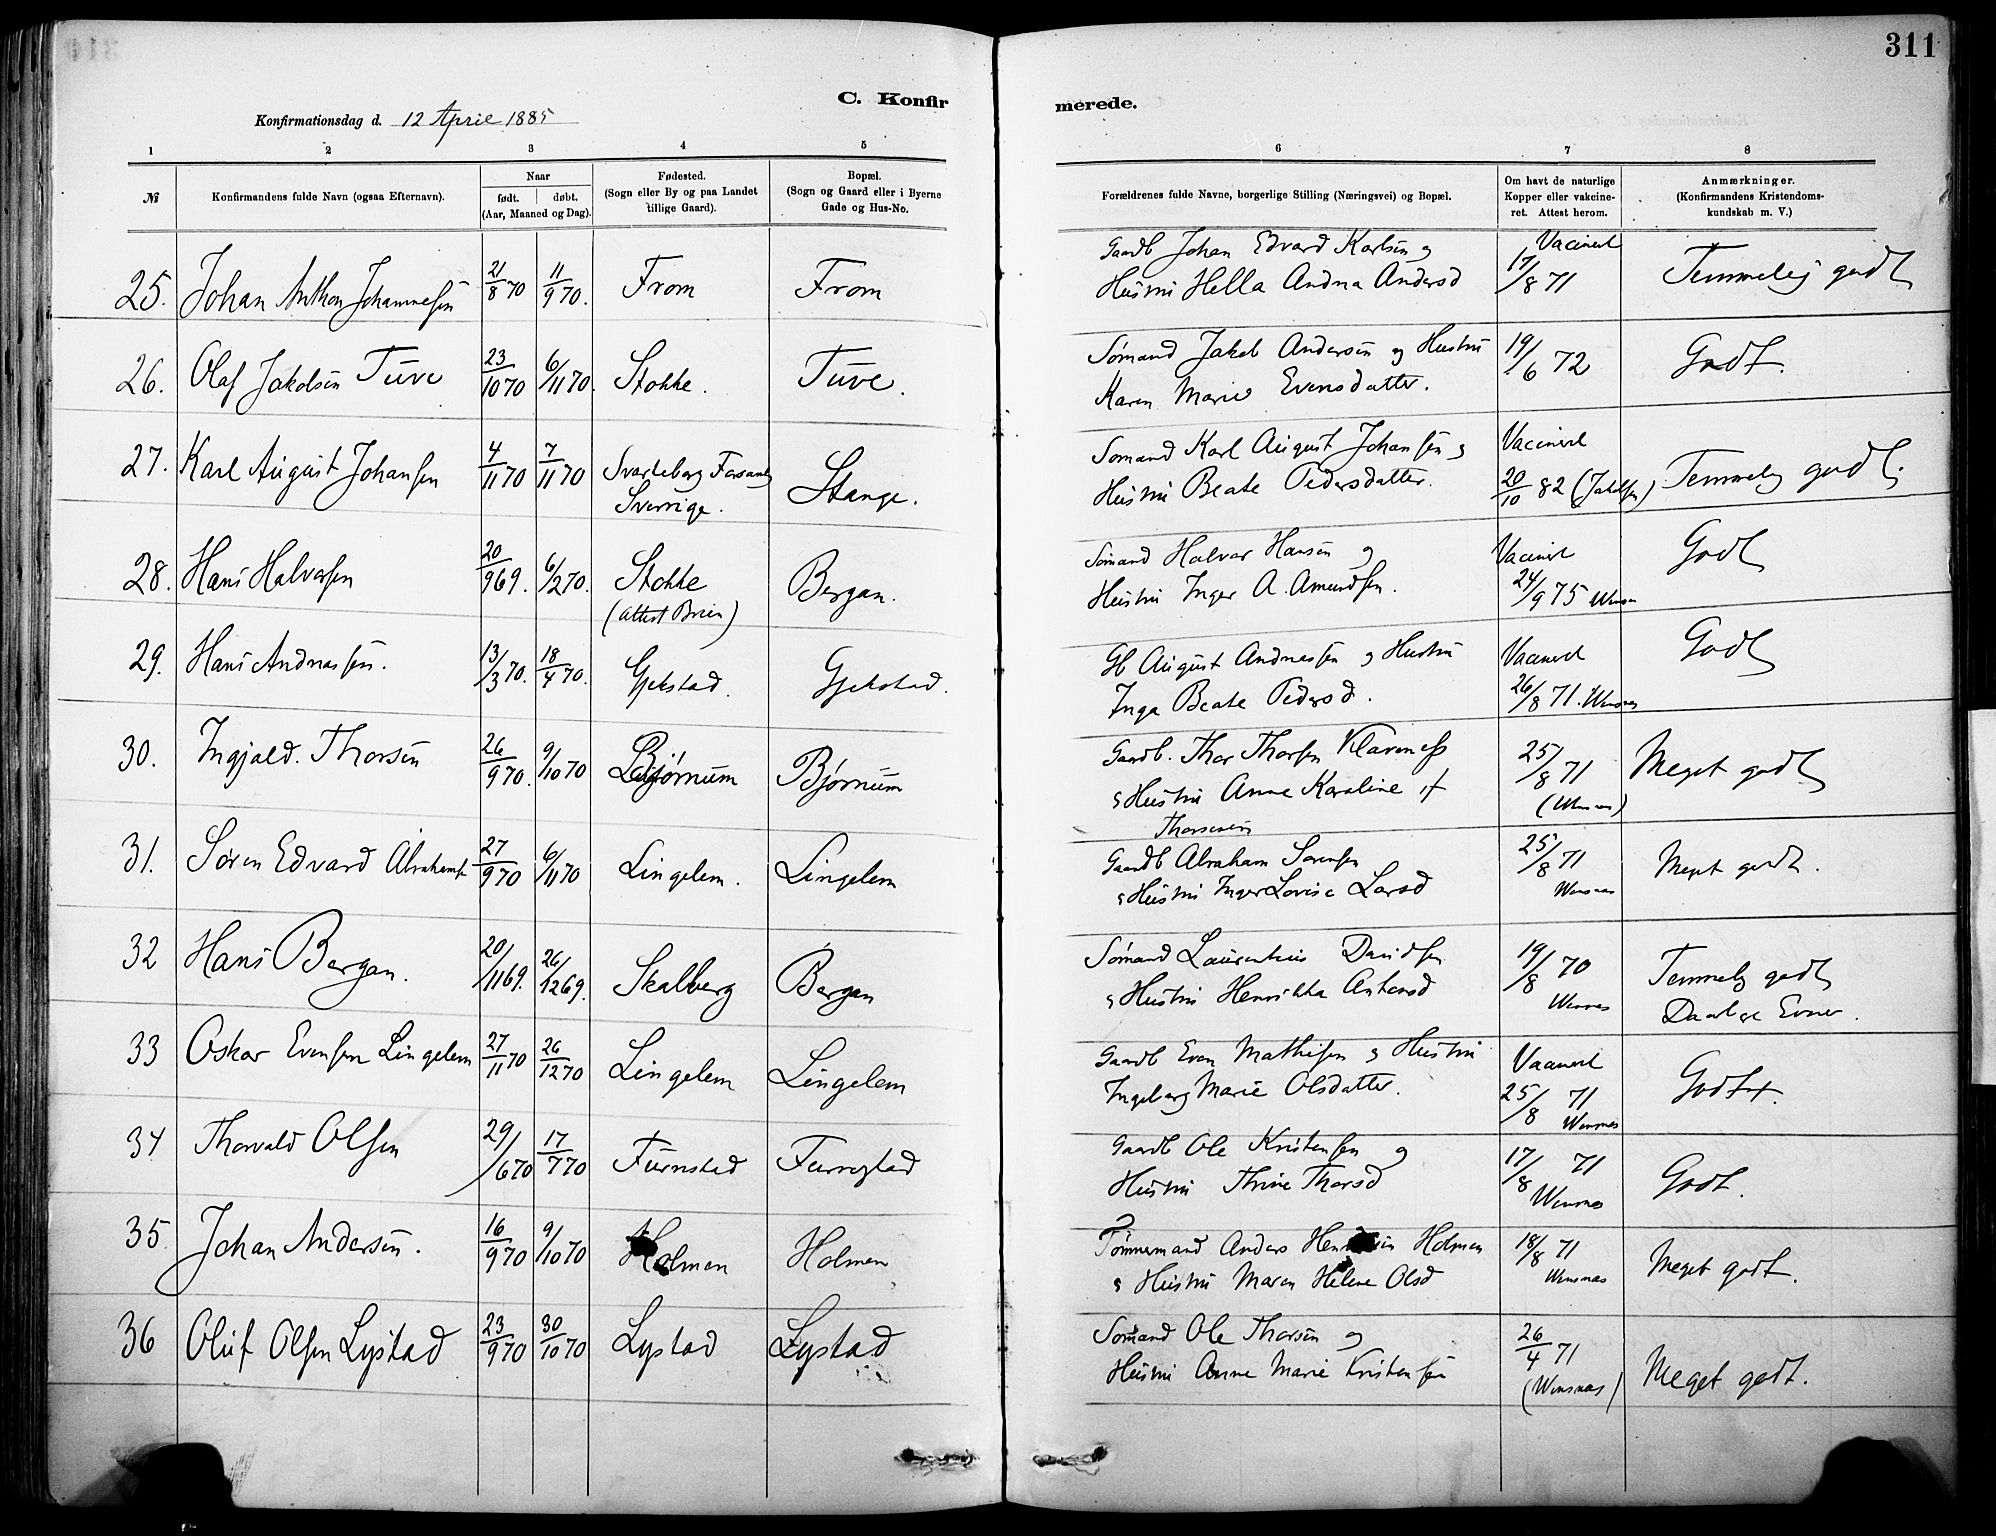 311
C. Konfirmerede.
Konfirmationsdag d. 12 April 1885
1 2 3 4 5 6 7 8
№
Konfirmandens fulde Navn (ogsaa Efternavn).
Naar
født. døbt.
(Aar, Maaned og Dag).
Fødested.
(Sogn eller By og paa Landet
tillige Gaard).
Bopæl.
(Sogn og Gaard eller i Byerne
Gade og Hus-No.
Forældrenes fulde Navne, borgerlige Stilling (Næringsvei) og Bopæl.
Om havt de naturlige
Kopper eller vakcine-
ret. Attest herom.
Anmærkninger.
(Konfirmandens Kristendoms-
kundskab m. V.)
25. Johan Anthon Johannesen 21/8 70 11/9 70. From From
Gaardb Johan Edvard Karlsen og
Hustru Hella Andrea Andersd
Vacineret
17/8 71
Temmelig godt
26. Olaf Jakobsen Tuve 23/10 70 6/11 70. Stokke. Tuve.
Sømand Jakob Andersen og Hustru
Karen Marie Evensdatter.
19/6 72
Godt.
27. Karl August Johansen 4/11 70 7/11 70 Svarteborg
Sverrige. Stange.
Sømand Karl August Johansen og
Hustru Beate Pedersdatter.
Vacineret
20/10 82 (Jakobsen)
Temmelig godt.
28. Hans Halvorsen 20/9 69. 6/2 70. Stokke
(attest Brun) Bergan.
Sømand Halvor Hansen og
Hustru Inger A. Amundsen.
Vacineret
24/9 75 Wensnæs
Godt
29. Hans Andreassen. 13/3 70. 18/4 70. Gjekstad. Gjekstad.
Gb August Andreassen og Hustru
Inga Beate Pedersd.
Vacineret
26/8 71. Wensnæs
Godt
30. Ingjald. Thorsen 26/9 70. 9/10 70 Bjørnum Bjørnum
Gaardb. Thor Thorsen Klavenæss
og Hustru Anne Karoline f
Thorsen
25/8 71
(Wensnæs)
Meget godt
31. Søren Edvard Abrahams 27/9 70 6/11 70 Lingelem. Lingelem
Gaardb Abraham Sørensen
og Hustru Inger Lovise Larsd
25/8 71
Wensnæs
Meget godt.
32 Hans Bergan. 20/11 69. 26/12 69. Skalberg Bergan
Sømand Laurentius Davidsen
og Hustru Henrikka Antonsd
19/8 70
Wensnæs
Temmelig godt
Daarlige Evner.
33 Oskar Evensen Lingelem 27/11 70 26/12 70 Lingelem Lingelem
Gaardb Even Mathisen og Hustru
Ingeborg Marie Olsdatter.
Vacineret
25/8 71
Wensnæs
Godt.
34 Thorvald Olsen 29/6 70 17/7 70 Furustad Furustad
Gaardb Ole Kristensen og
Hustru Thrine Thorsd
17/8 71
Wensnæs
Godt.
35. Johan Andersen. 16/9 70 9/10 70 Holmen Holmen
Tømmermand Anders Henriksen Holmen
og Hustru Maren Helene Olsd
18/8 71
Wensnæs
Meget godt.
36 Oluf Olsen Lystad 23/9 70 30/10 70 Lystad Lystad
Sømand Ole Thorsen og
Hustru Anne Marie Kristensen
26/4 71
(Wensnæs)
Meget godt.